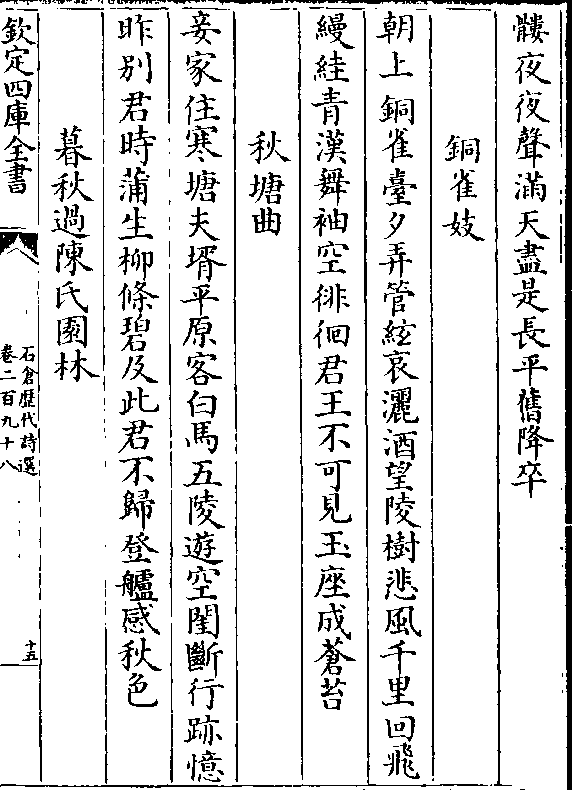 髏夜夜聲滿天盡是長平舊降卒
銅雀妓
朝上銅雀臺夕弄管絃哀灑酒望陵樹悲風千里回飛
縵絓青漢舞袖空徘徊君王不可見玉座成蒼苔
秋塘曲
妾家住寒塘夫壻平原客白馬五陵遊空閨斷行跡憶
昨別君時蒲生柳條碧及此君不歸登艫感秋色
暮秋過陳氏園林
欽定四庫全書
石倉歷代詩選
卷二百九十八
十五